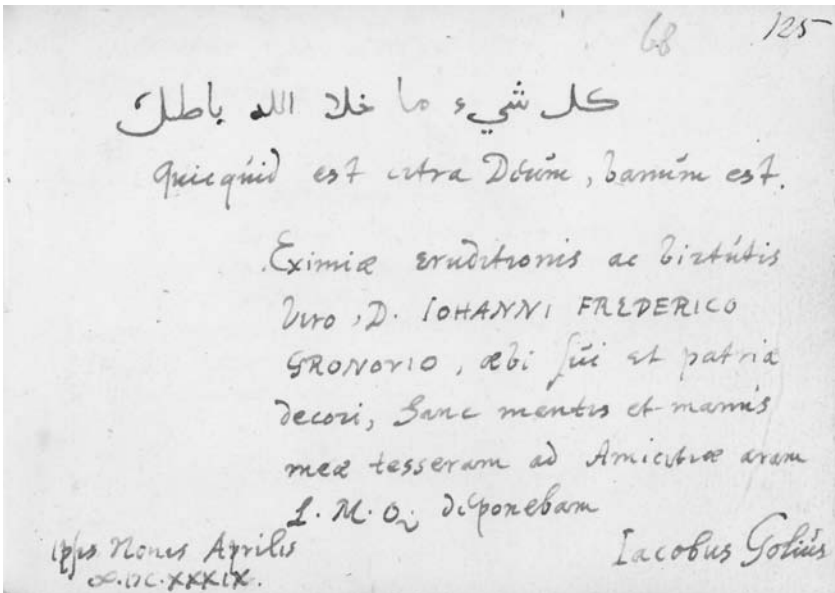 68 125
كل شيء ما خلا الله باطل
Quicquid est citra Deum, vanum est.
Eximiæ eruditionis ac virtutis
viro, D. IOHANNI FREDERICO
GRONOVIO, ævi sui et patriæ
decori, hanc mentis et manus
meæ tesseram ad Amicitiæ aram
L. M. Q. deponebam
ipsis Nonis Aprilis
Iacobus Golius
XXXIX.